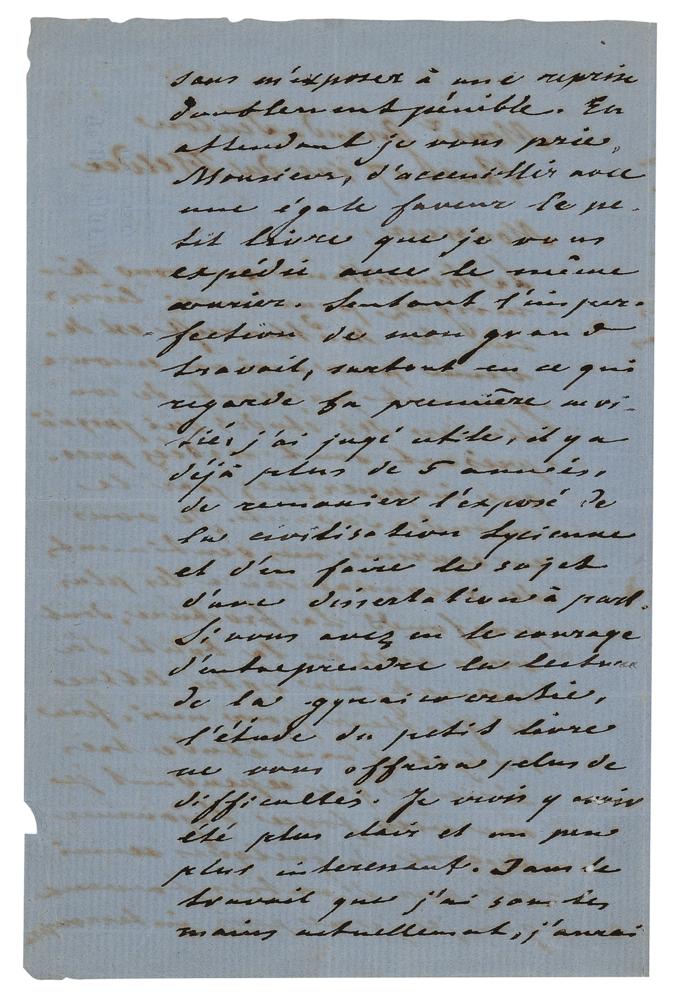 sans m'exposer à une reprise
doublement pénible. En
attendant je vous prie,
Monsieur, d'accueillir avec
une égale faveur le pe-
tit livre que je vous
expédie avec le même
courier. Sentant l'imper-
fection de mon grand
travail, surtout en ce qui
regarde sa première moi-
tié, j'ai jugé utile, il y a
déjà plus de 5 années,
de remanier l'exposé de
la civilisation Lycienne
et d'en faire le sujet
d'une dissertation à part.
Si vous avez eu le courage
d'entreprendre la lecture
de la gynaicocratie,
l'étude du petit livre
ne vous offrira plus de
difficultés. Je crois y avoir
été plus clair et un peu
plus interessant. Dans le
travail que j'ai sous les
mains actuellement, j'aurai